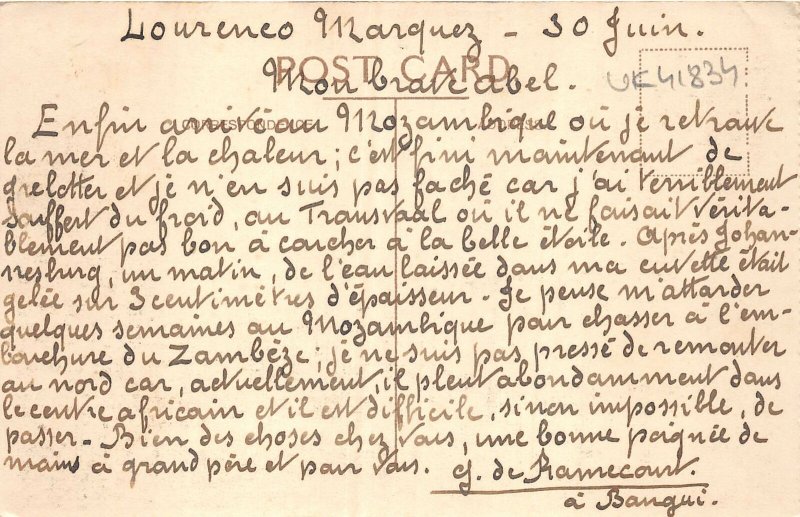 Lourenco Marquez - 30 Juin.
POST CARD
Mon brave Abel.
UK41834
CORRESPONDENCE
Enfin arrivé au Mozambique où je retrouve
la mer et la chaleur; c'est fini maintenant de
grelotter et je n'en suis pas faché car j'ai terriblement
souffert du froid, au Transvaal où il ne faisait vérita-
blement pas bon à coucher à la belle étoile. Après Johan-
nesburg, un matin, de l'eau laissée dans ma cuvette était
gelée sur 3 centimètres d'épaisseur. Je pense m'attarder
quelques semaines au Mozambique pour chasser à l'em-
bouchure du Zambèze; je ne suis pas pressé de remonter
au nord car, actuellement, il pleut abondamment dans
le centre africain et il est difficile, sinon impossible, de
passer. Bien des choses chez vous, une bonne poignée de
mains à grand père et pour vous. G. de Ramecourt.
à Bangui.